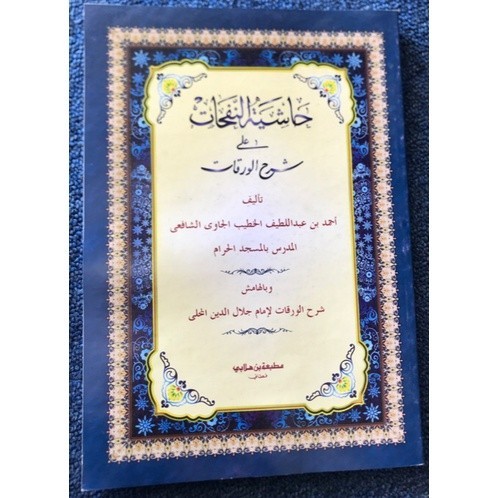 حاشية النفحات
على
شرح الورقات
تأليف
أحمد بن عبداللطيف الخطيب الجاوى الشافعى
المدرس بالمسجد الحرام
وبالهامش
شرح الورقات لإمام جلال الدين المحلى
مطبعة بن هلابي